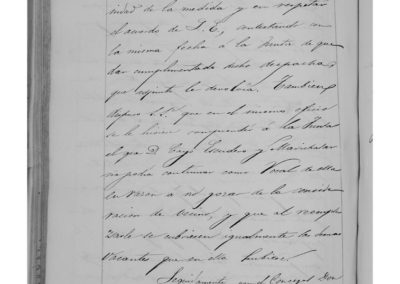 sidad de la medida y en respetar
el acuerdo de S. E., contestando con
la misma fecha á la Junta de que
dar cumplimentado dicho despacho,
que adjunto le devolvia. Tambien
dispuso S. S. que en el mismo oficio
se le hiciera comprender á la Junta
el que D. Escudero y
no podia continuar como Vocal de ella
en razon á no gozar de la conside
racion de vecino, y que al reempla
zarle se cubriesen igualmente las demas
vacantes que en ella hubiese.
Seguidamente, el Concejal Don